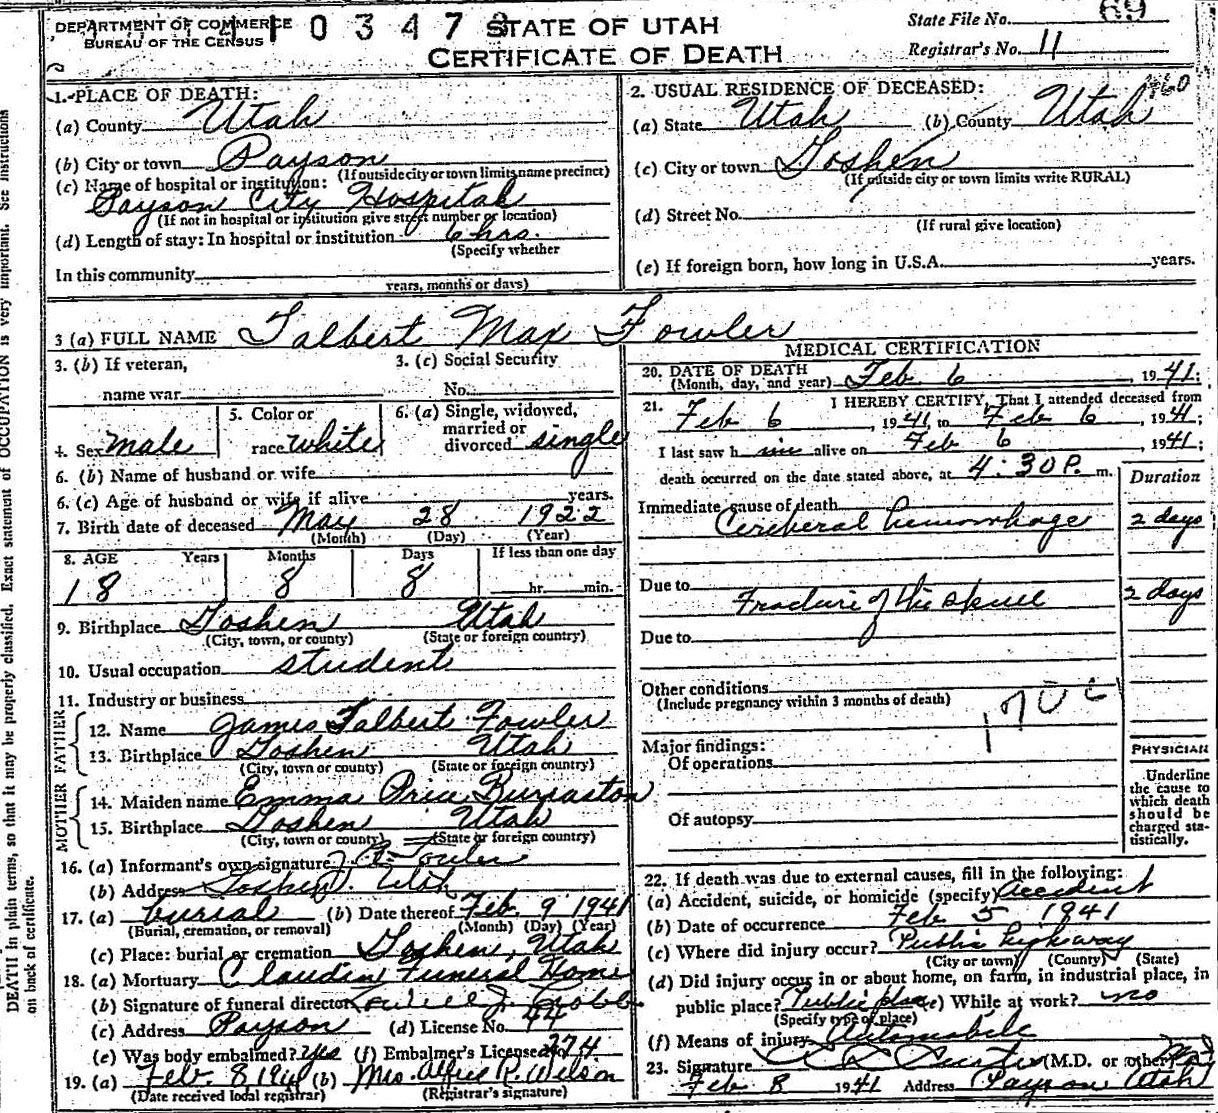 DEPARTMENT OF COMMERCE
BUREAU OF THE CENSUS
STATE OF UTAH
CERTIFICATE OF DEATH
State File No. 69
Registrar's No. 11
1. PLACE OF DEATH:
(a) County Utah
(b) City or town Payson
(If outside city or town limits, name precinct)
(c) Name of hospital or institution:
Payson City Hospital
(If not in hospital or institution give street number or location)
(d) Length of stay: In hospital or institution 6 hrs.
(Specify whether
In this community
years, months or days)
2. USUAL RESIDENCE OF DECEASED:
(a) State Utah (b) County Utah
(c) City or town Goshen
(If outside city or town limits write RURAL)
(d) Street No.
(If rural give location)
(e) If foreign born, how long in U.S.A. years.
3 (a) FULL NAME Talbert Max Fowler
3. (b) If veteran,
name war
3. (c) Social Security
No.
4. Sex male
5. Color or
race white
6. (a) Single, widowed,
married or
divorced single
6. (b) Name of husband or wife
6. (c) Age of husband or wife if alive years.
7. Birth date of deceased May 28 1922
(Month) (Day) (Year)
8. AGE Years Months Days If less than one day
18 8 8 hr. min.
9. Birthplace Goshen Utah
(City, town, or county) (State or foreign country)
10. Usual occupation student
11. Industry or business
FATHER
12. Name James Talbert Fowler
13. Birthplace Goshen Utah
(City, town or county) (State or foreign country)
MOTHER
14. Maiden name Emma Price Burraston
15. Birthplace Goshen Utah
(City, town or county) (State or foreign country)
16. (a) Informant's own signature J. T. Fowler
(b) Address Goshen, Utah
17. (a) burial (b) Date thereof Feb. 9 1941
(Burial, cremation, or removal) (Month) (Day) (Year)
(c) Place: burial or cremation Goshen, Utah
18. (a) Mortuary Claudin Funeral Home
(b) Signature of funeral director
(c) Address Payson (d) License No. 44
(e) Was body embalmed? yes (f) Embalmer's License 274
19. (a) Feb. 8 1941 (b) Mrs. Alfred R. Wilson
(Date received local registrar) (Registrar's signature)
MEDICAL CERTIFICATION
20. DATE OF DEATH
(Month, day, and year) Feb 6, 1941;
21. I HEREBY CERTIFY, That I attended deceased from
Feb 6, 1941, to Feb 6, 1941;
I last saw him alive on Feb 6 1941;
death occurred on the date stated above, at 4:30 P. m.
Duration
Immediate cause of death
Cerebral hemorrhage 2 days
Due to Fracture of the skull 2 days
Due to
Other conditions
(Include pregnancy within 3 months of death)
Major findings:
Of operations
Of autopsy
PHYSICIAN
Underline
the cause to
which death
should be
charged sta-
tistically.
22. If death was due to external causes, fill in the following:
(a) Accident, suicide, or homicide (specify) Accident
(b) Date of occurrence Feb 5 1941
(c) Where did injury occur? Public highway
(City or town) (County) (State)
(d) Did injury occur in or about home, on farm, in industrial place, in
public place? Public place (e) While at work? no
(Specify type of place)
(f) Means of injury Automobile
23. Signature (M.D. or other)
Feb 8 1941 Address Payson Utah
DEATH in plain terms, so that it may be properly classified. Exact statement of OCCUPATION is very important. See instructions
on back of certificate.